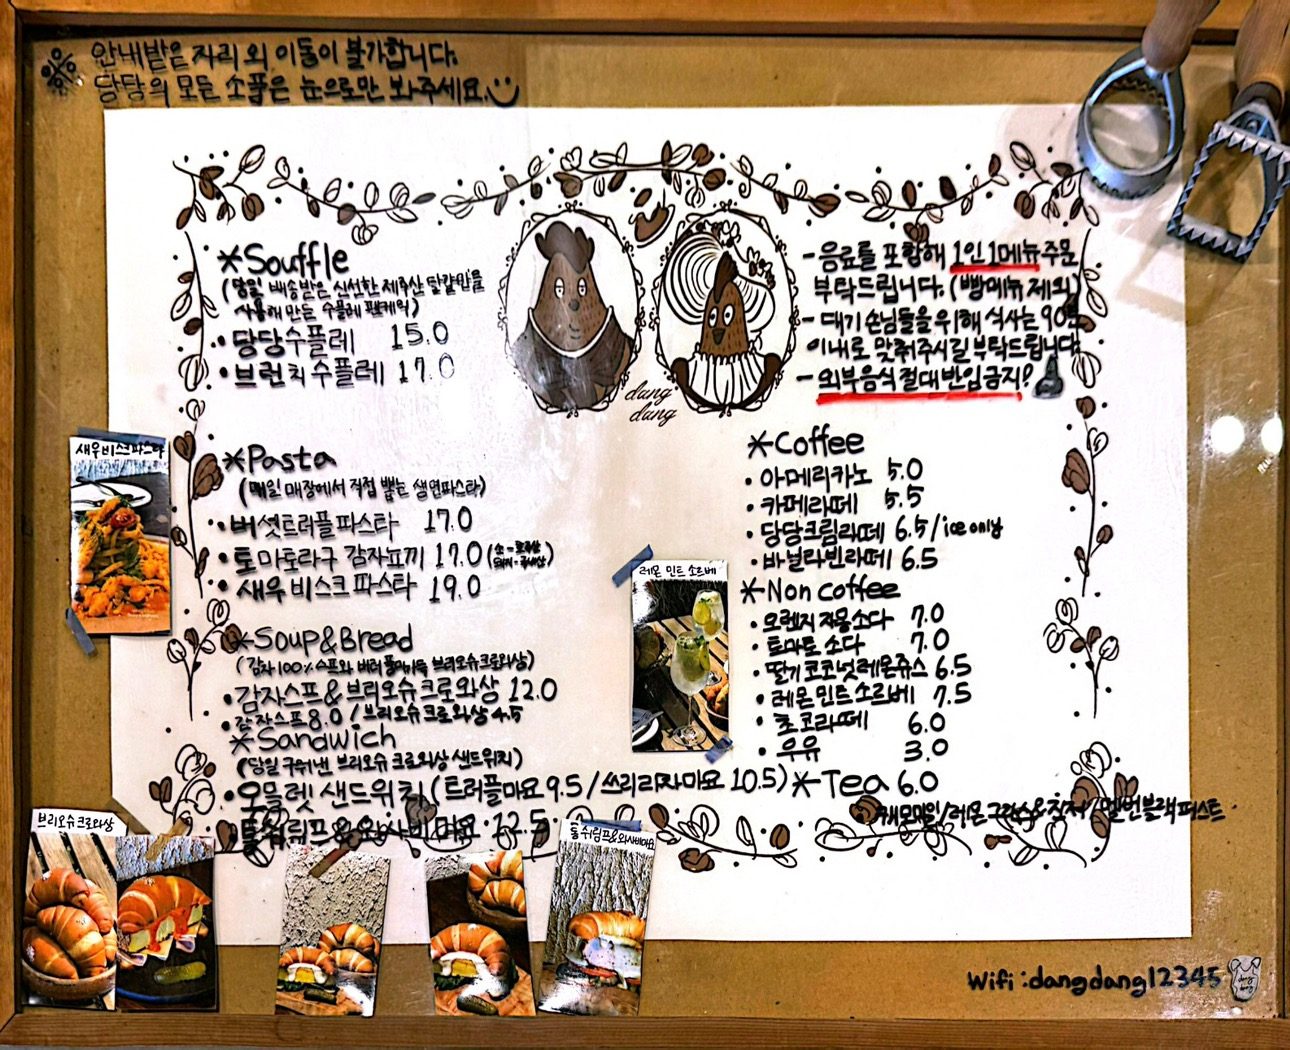 안내받은 자리 외 이동이 불가합니다.
당당의 모든 소품은 눈으로만 봐주세요.
*Souffle
(당일 배송받은 신선한 제주산 달걀만을
사용해 만든 수플레 팬케익)
• 당당수플레 15.0
• 브런치수플레 17.0
dang
dang
- 음료를 포함해 1인 1메뉴 주문
부탁드립니다. (빵메뉴 제외)
- 대기 손님들을 위해 식사는 90분
이내로 맞춰주시길 부탁드립니다.
- 외부음식 절대 반입금지!
새우비스크파스타
*Pasta
(매일 매장에서 직접 뽑는 생면파스타)
• 버섯트러플파스타 17.0
• 토마토라구 감자뇨끼 17.0
• 새우비스크 파스타 19.0
*Soup&Bread
(감자100% 스프와 버터 브리오슈크로와상)
• 감자스프&브리오슈크로와상 12.0
• 감자스프8.0 / 브리오슈크로와상 4.5
*Sandwich
(당일 구워낸 브리오슈 크로와상 샌드위치)
• 오믈렛 샌드위치 (트러플마요 9.5 / 쓰리라차마요 10.5)
• 통쉬림프&와사비마요 12.5
*Coffee
• 아메리카노 5.0
• 카페라떼 5.5
• 당당크림라떼 6.5/ice only
• 바닐라빈라떼 6.5
레몬 민트 소르베
*Non coffee
• 오렌지 자몽소다 7.0
• 토마토 소다 7.0
• 딸기코코넛레몬쥬스 6.5
• 레몬 민트 소르베 7.5
• 초코라떼 6.0
• 우유 3.0
*Tea 6.0
캐모마일/레몬 그라스&진저/멜번블랙퍼스트
브리오슈크로와상
통쉬림프&와사비마요
Wifi : dangdang12345
dang
dang